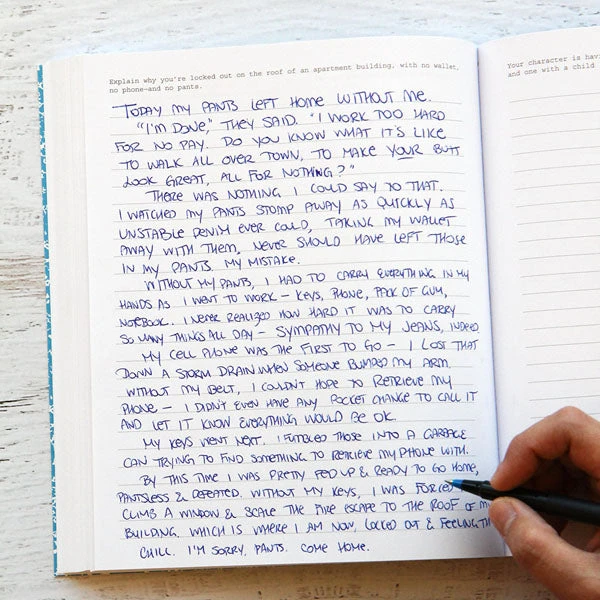 Explain why you're locked out on the roof of an apartment building, with no wallet,
no phone—and no pants.
TODAY MY PANTS LEFT HOME WITHOUT ME.
"I'M DONE," THEY SAID. "I WORK TOO HARD
FOR NO PAY. DO YOU KNOW WHAT IT'S LIKE
TO WALK ALL OVER TOWN, TO MAKE YOUR BUTT
LOOK GREAT, ALL FOR NOTHING?"
THERE WAS NOTHING I COULD SAY TO THAT.
I WATCHED MY PANTS STOMP AWAY AS QUICKLY AS
UNSTABLE DENIM EVER COULD, TAKING MY WALLET
AWAY WITH THEM, NEVER SHOULD HAVE LEFT THOSE
IN MY PANTS. MY MISTAKE.
WITHOUT MY PANTS, I HAD TO CARRY EVERYTHING IN MY
HANDS AS I WENT TO WORK – KEYS, PHONE, PACK OF GUM,
NOTEBOOK. I NEVER REALIZED HOW HARD IT WAS TO CARRY
SO MANY THINGS ALL DAY – SYMPATHY TO MY JEANS, INDEED.
MY CELL PHONE WAS THE FIRST TO GO – I LOST THAT
DOWN A STORM DRAIN WHEN SOMEONE BUMPED MY ARM.
WITHOUT MY BELT, I COULDN'T HOPE TO RETRIEVE MY
PHONE – I DIDN'T EVEN HAVE ANY POCKET CHANGE TO CALL IT
AND LET IT KNOW EVERYTHING WOULD BE OK.
MY KEYS WENT NEXT. I FUMBLED THOSE INTO A GARBAGE
CAN TRYING TO FIND SOMETHING TO RETRIEVE MY PHONE WITH.
BY THIS TIME I WAS PRETTY FED UP & READY TO GO HOME,
PANTSLESS & DEFEATED. WITHOUT MY KEYS, I WAS FORCED
CLIMB A WINDOW & SCALE THE FIRE ESCAPE TO THE ROOF OF M
BUILDING. WHICH IS WHERE I AM NOW, LOCKED OUT & FEELING TH
CHILL. I'M SORRY, PANTS. COME HOME.
Your character is havi
and one with a child